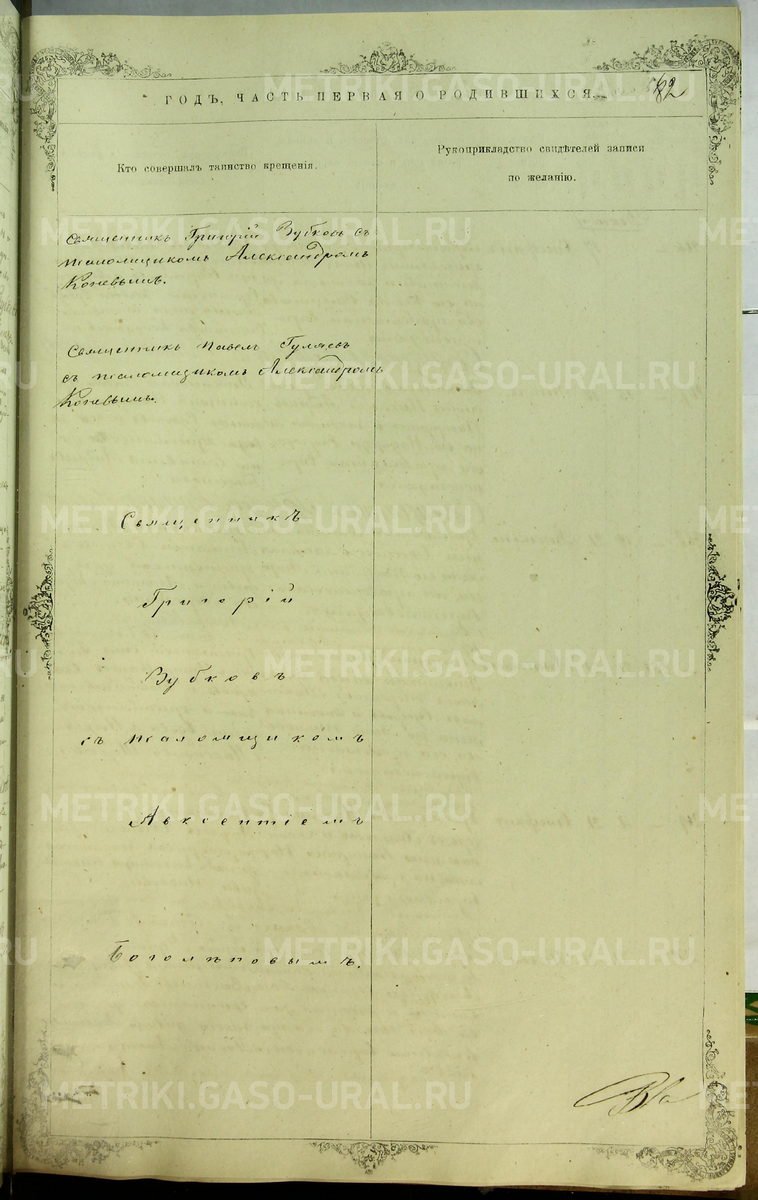 ГОДЪ, ЧАСТЬ ПЕРВАЯ О РОДИВШИХСЯ. 62
Кто совершалъ таинство крещенія.
Рукоприкладство свидѣтелей записи
по желанію.
Священникъ Григорій Зубковъ съ
псаломщикомъ Александромъ
Коневымъ.
Священникъ Павелъ Гуляевъ
съ псаломщикомъ Александромъ
Коневымъ.
Священникъ
Григорій
Зубковъ
съ псаломщикомъ
Авксентіемъ
Боголѣповымъ.
METRIKI.GASO-URAL.RU